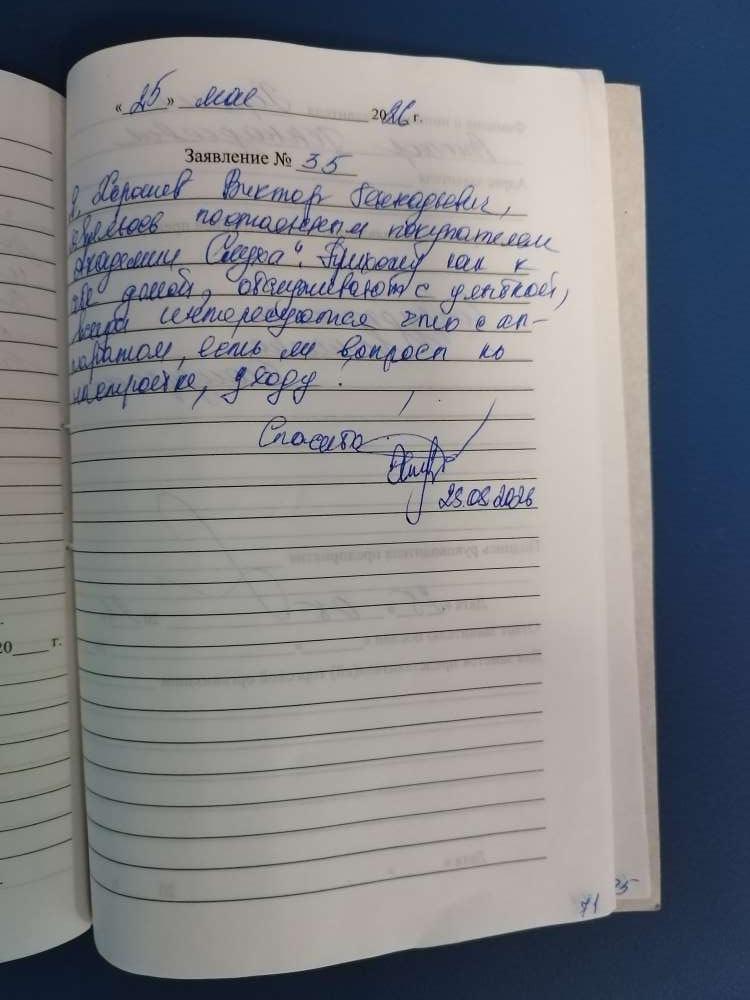 «25» мая 2026 г.
Заявление № 35
Я, Хорошев Виктор Генадьевич,
являюсь постоянным покупателем
Академии Слуха". Прихожу как к
себе домой, обслуживают с улыбкой,
всегда интересуются что с ап-
паратом, есть ли вопросы по
настройке, уходу.
Спасибо
2026
20 г.
71
35